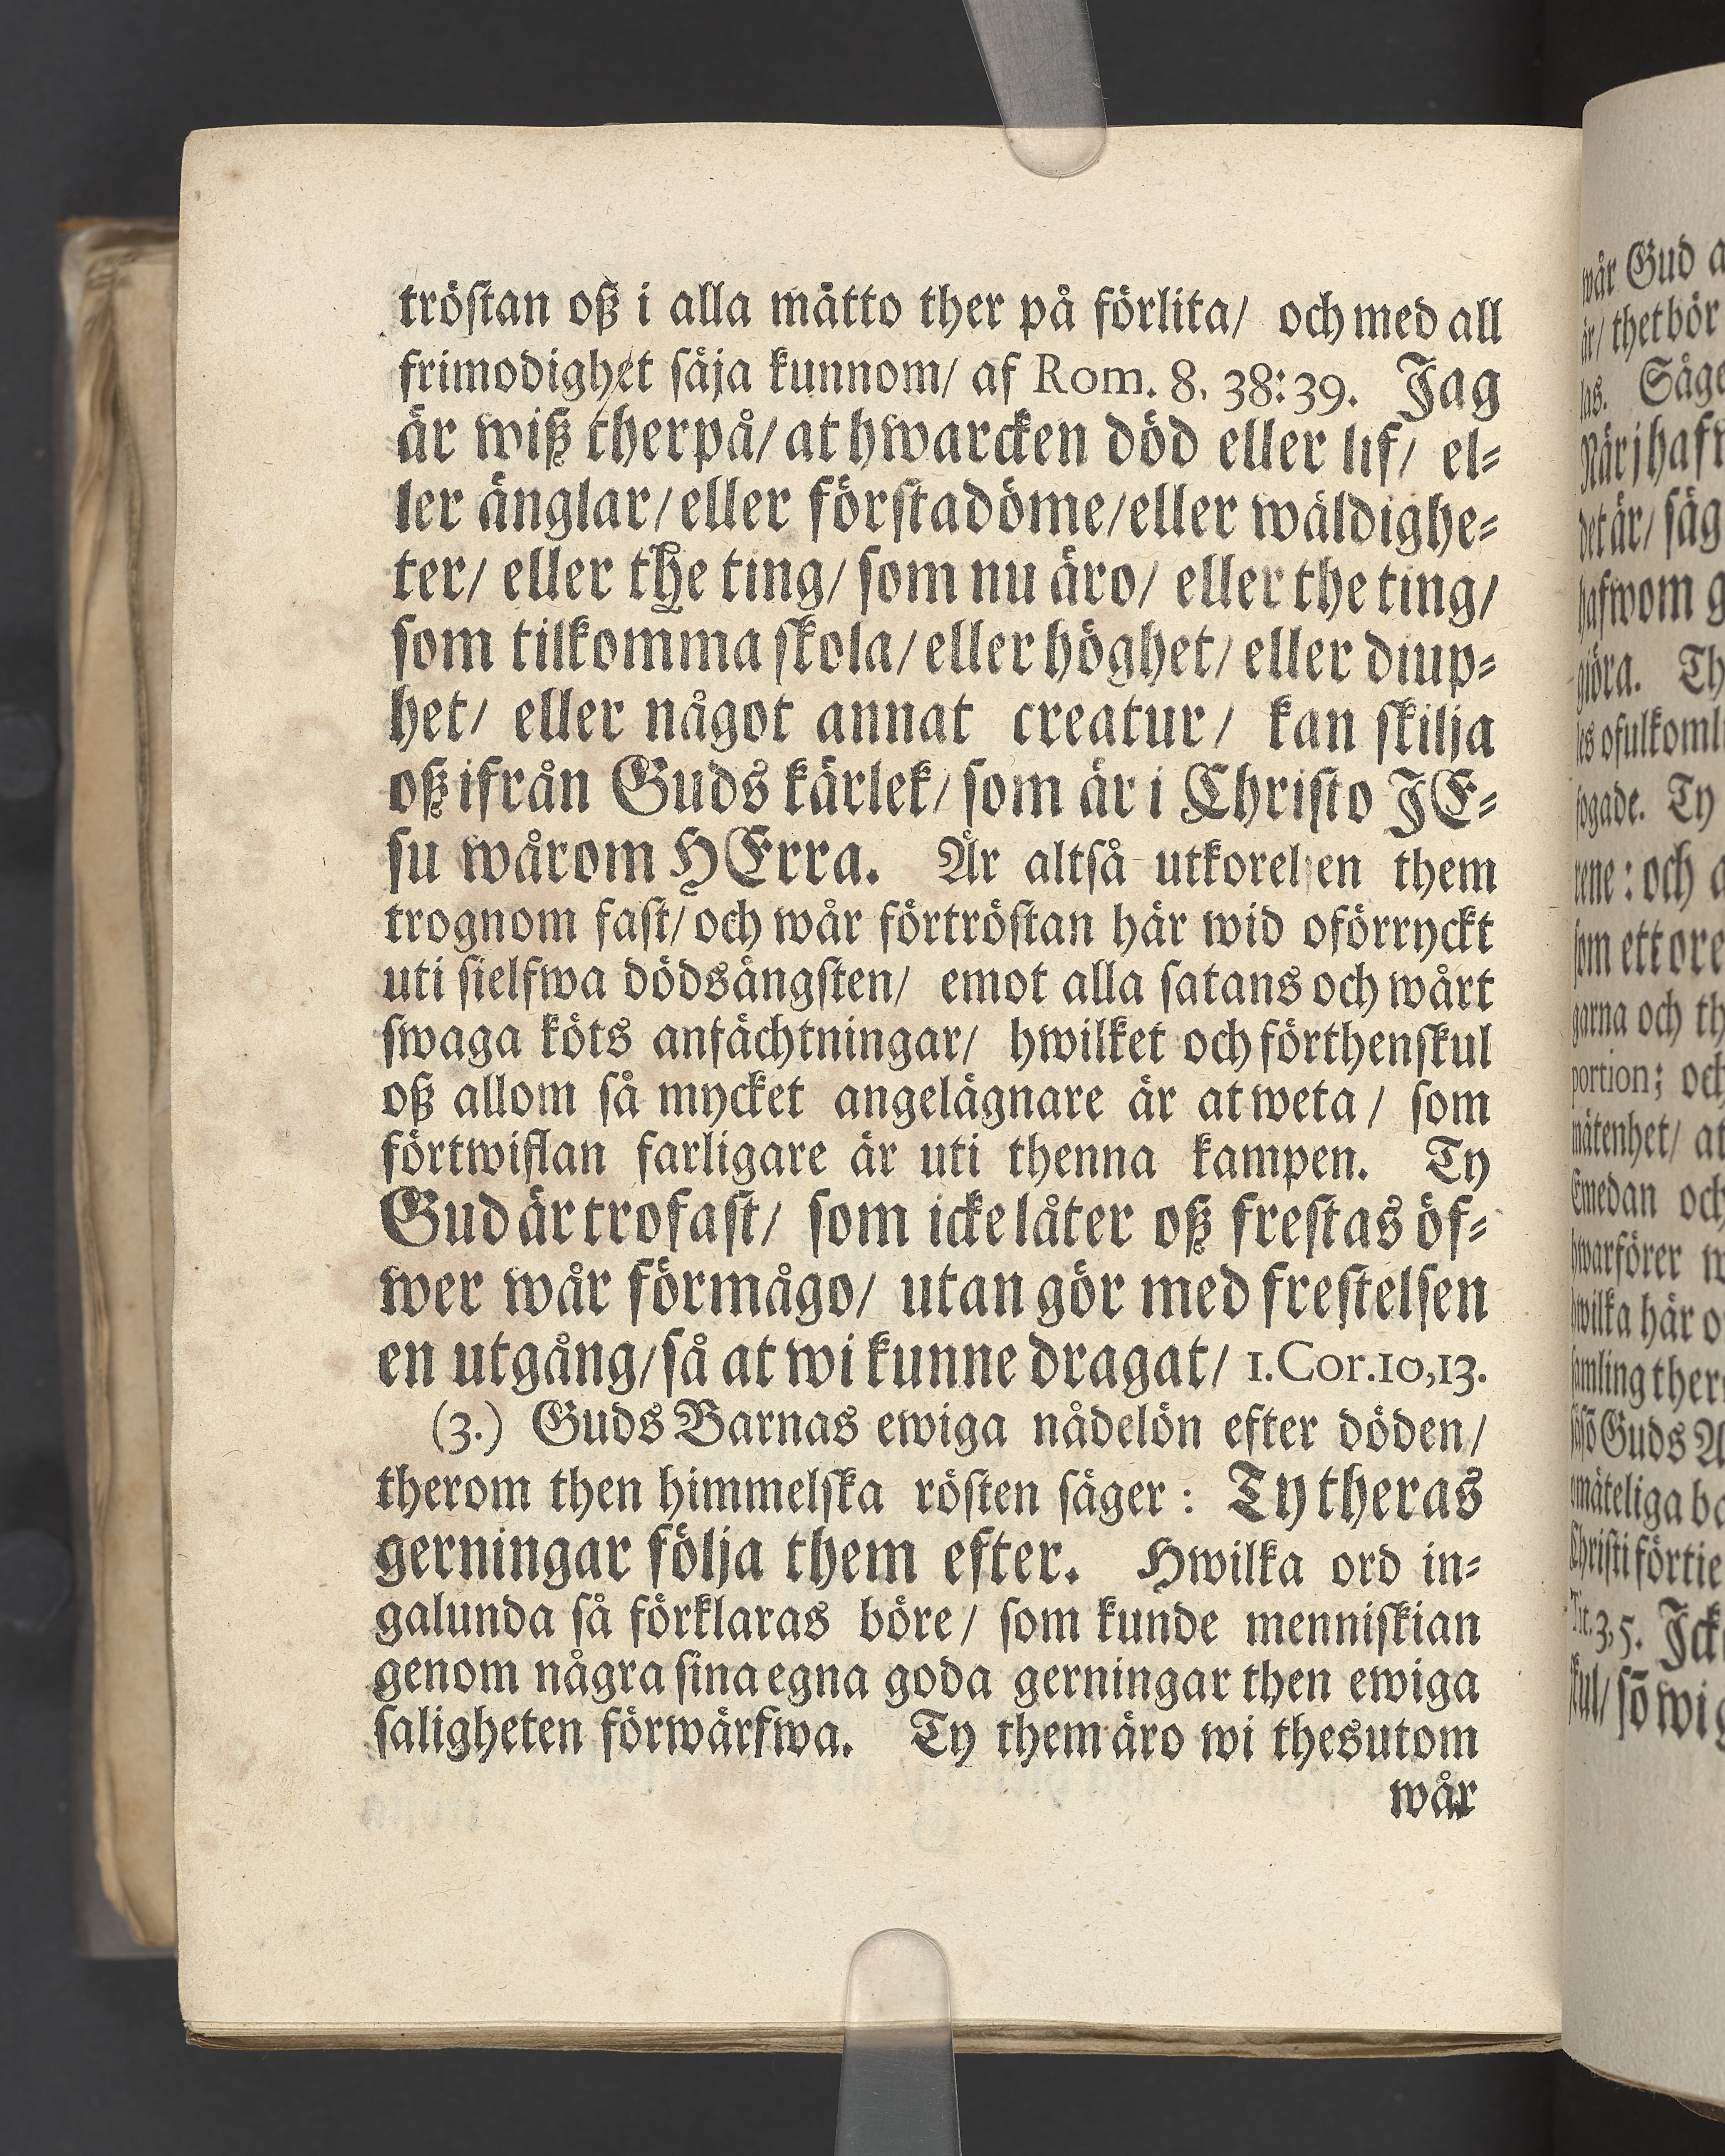 tröſtan oß i alla mätto ther på förlita/ och med all
frimodighet ſäja kunnom/ af Rom. 8. 38:39. Jag
är wiß therpå/ at hwarcken död eller lif/ el⸗
ler änglar/ eller förſtadöme/ eller wäldighe⸗
ter/ eller the ting/ ſom nu äro/ eller the ting/
ſom tilkomma ſkola/ eller höghet/ eller diup⸗
het/ eller något annat creatur/ kan ſkilja
oß ifrån Guds kärlek/ ſom är i Chriſto JE⸗
ſu wårom HErra. Är altſå utkorelſen them
trognom faſt/ och wår förtröſtan här wid oförryckt
uti ſielfwa dödsängſten/ emot alla ſatans och wårt
ſwaga köts anfächtningar/ hwilket och förthenſkul
oß allom ſå mycket angelägnare är at weta/ ſom
förtwiflan farligare är uti thenna kampen. Ty
Gud är trofaſt/ ſom icke låter oß freſtas öf⸗
wer wår förmågo/ utan gör med freſtelſen
en utgång/ ſå at wi kunne dragat/ 1. Cor. 10, 13.
(3.) Guds Barnas ewiga nådelön efter döden/
therom then himmelſka röſten ſäger: Ty theras
gerningar följa them efter. Hwilka ord in⸗
galunda ſå förklaras böre/ ſom kunde menniſkian
genom några ſina egna goda gerningar then ewiga
ſaligheten förwärfwa. Ty them äro wi thesutom
wår
wår Gud
är/ thet bör
las. Säge
När j haf
det är/ ſäg
hafwom g
giöra. Th
les ofulkomli
fogade. Ty
rene: och a
ſom ett ore
garna och th
portion; och
mätenhet/ at
Emedan och
hwarförer w
hwilka här o
ſamling ther
Guds A
omäteliga ba
Chriſti förtie
Tit. 3, 5. Jck
ſkul/ ſō wi